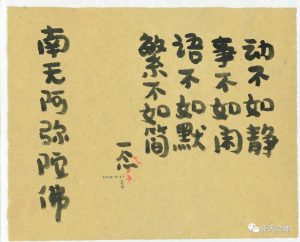 动不如静
事不如闲
语不如默
繁不如简
一态
南无阿弥陀佛